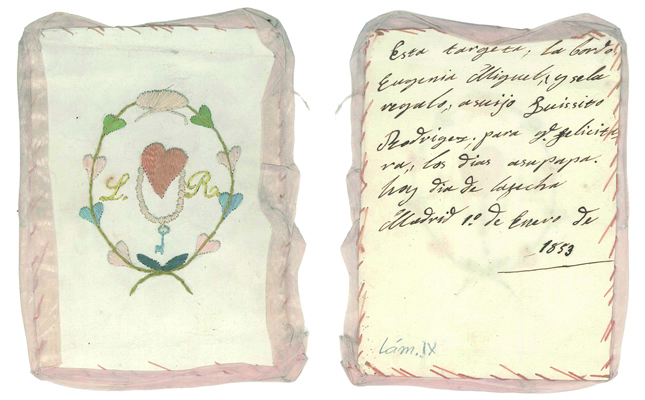 L. R.
Esta targeta, la bordo,
Eugenia Miguel, y sela
regalo, asuijo Luissito
Rodrigez, para q.e felicita
ra, los dias asupapa.
hoy dia de lafecha
Madrid 1.o de Enero de
1853
lám. IX